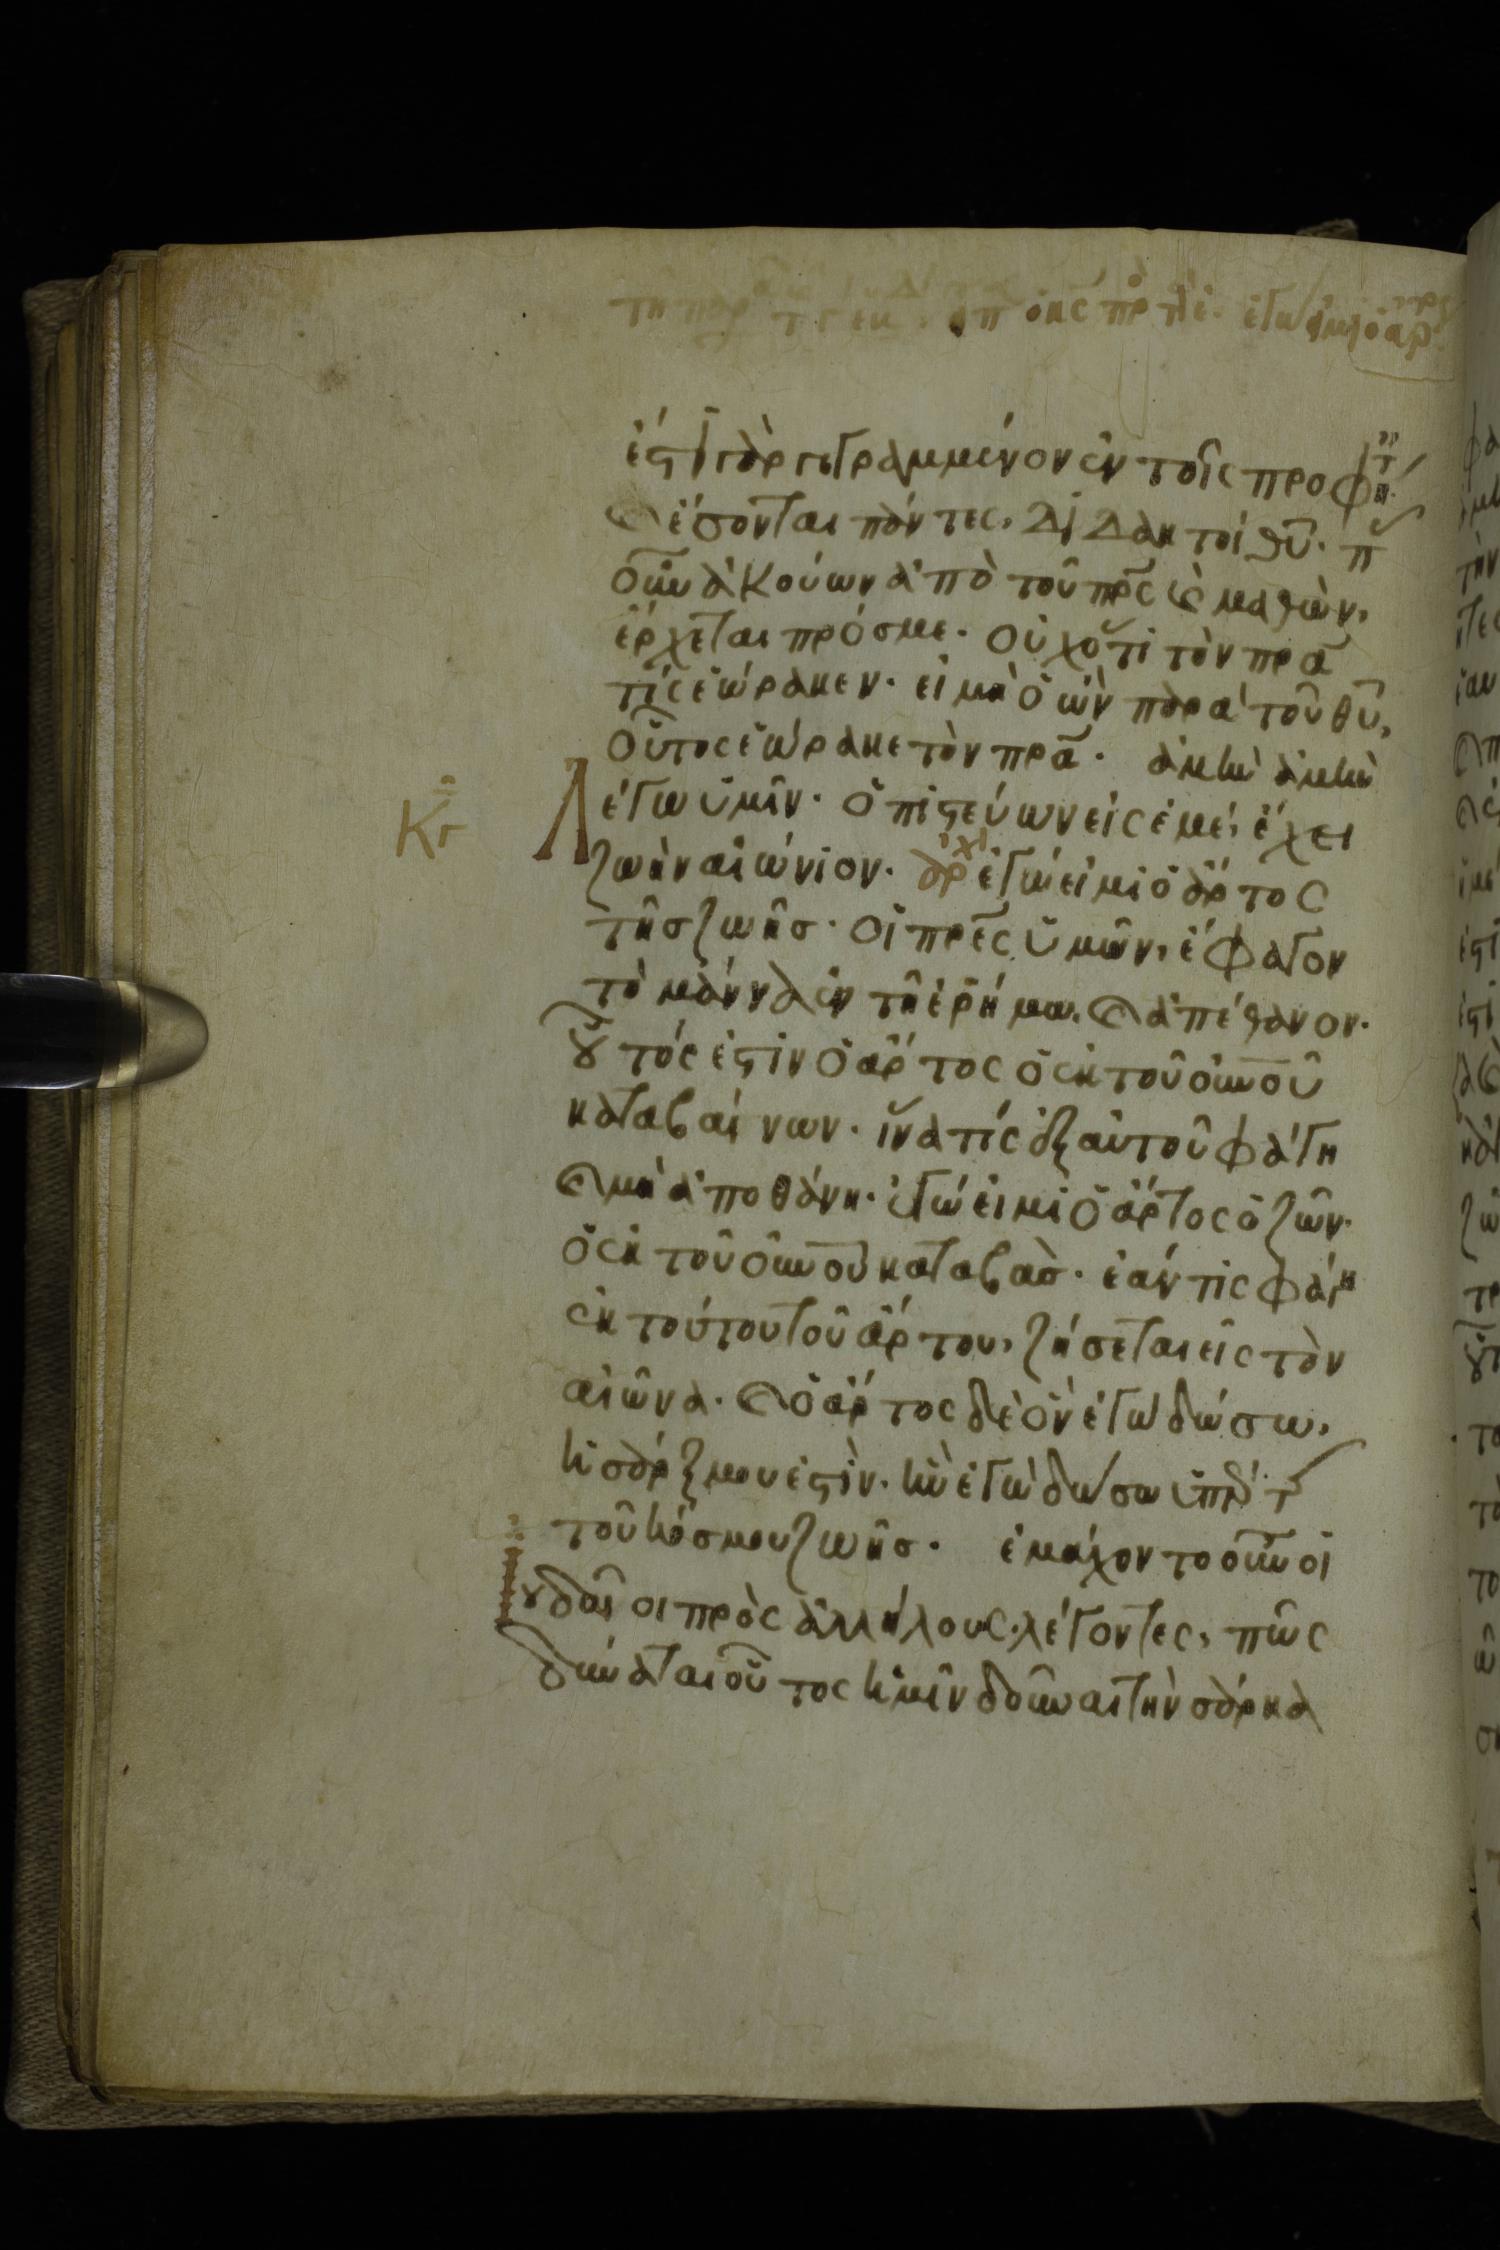 ἐςὶ γὰρ γεγραμμένον ἐν τοῖς προφή
καὶ ἔσονται πάντες, διδακτοὶ θῦ. π
οὖν ἀκούων ἀπὸ τοῦ πρς καὶ μαθὼν,
ἔρχεται πρόσμε. οὐχ ὅτι τὸν πρα
τίς ἑώρακεν. εἰ μὴ ὁ ὢν παρὰ τοῦ θῦ,
οὗτος ἑώρακε τὸν πρα. ἀμὴν ἀμὴν
Λέγω ὑμῖν. ὁ πιςεύων εἰς ἐμὲ, ἔχει
ζωὴν αἰώνιον. ἀρχ ἐγώ εἰμι ὁ ἄρτος
τῆσ ζωῆσ. οἱ πρες ὑμῶν, ἔφαγον
τὸ μάννα ἐν τῆ ἐρήμω, καὶ ἀπέθανον.
οὗτός ἐςιν ὁ ἄρτος ὁ ἐκ τοῦ οὐνοῦ
καταβαίνων. ἵνα τίς ἐξ αὐτοῦ φάγη
καὶ μὴ ἀποθάνη. ἐγώ εἰμι ὁ ἄρτος ὁ ζῶν.
ὁ ἐκ τοῦ οὐνοῦ καταβάσ. ἐάν τις φάγη
ἐκ τούτου τοῦ ἄρτου, ζήσεται εἰς τὸν
αἰῶνα. καὶ ὁ ἄρτος δὲ ὃν ἐγὼ δώσω,
ἡ σάρξ μου ἐςὶν. ἣν ἐγὼ δώσω ὑπὲρ τ
τοῦ κόσμου ζωῆσ. ἐμάχοντο οὖν οἱ
Ἰουδαῖοι πρὸς ἀλλήλους λέγοντες, πῶς
δύναται οὗτος ἡμῖν δοῦναι τὴν σάρκα